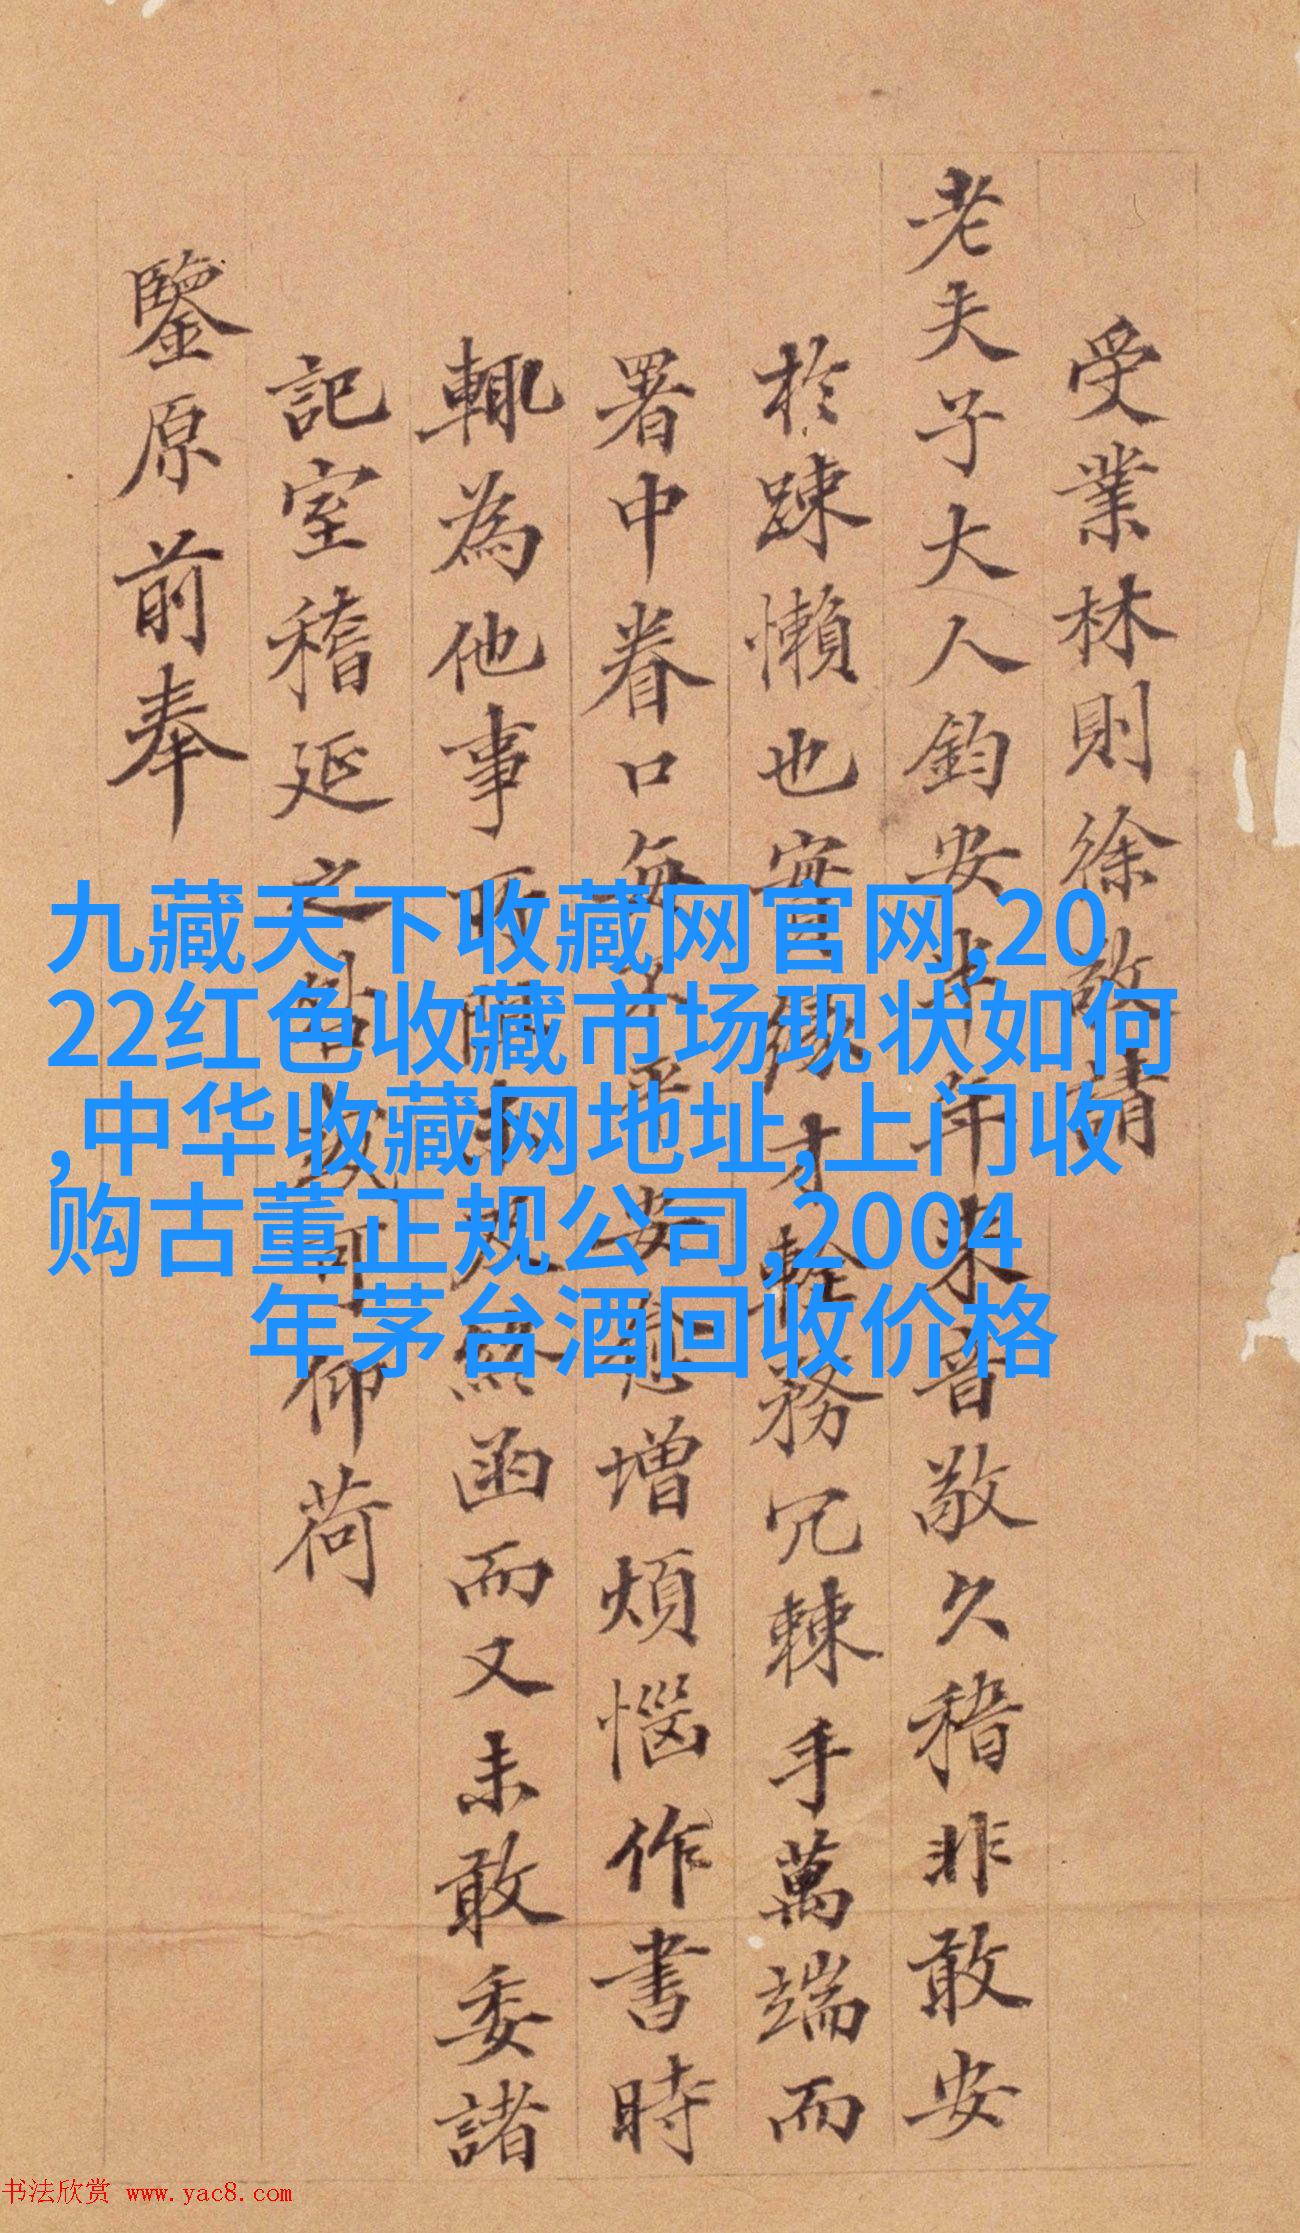 受業林則徐敬請
老夫子大人鈞安半年來音敬久稽非敢安
於踈懶也實緣才輇務冗棘手萬端而
署中眷口安愈增煩惱作書時
輒為他事所函而又未敢委諸
記室稽延之咎可仰荷
鑒原前奉
九藏天下收藏网官网,20
22红色收藏市场现状如何
,中华收藏网地址,上门收
购古董正规公司,2004
年茅台酒回收价格
书法欣赏 www.yac8.com